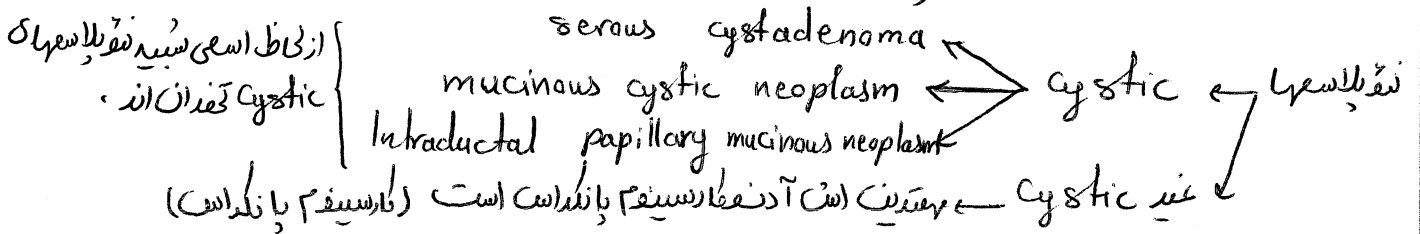 نئوپلاسمها ← Cystic
serous cystadenoma
mucinous cystic neoplasm
Intraductal papillary mucinous neoplasm
از لحاظ اسمی شبیه نئوپلاسمهای
Cystic تخمدان اند .
غیر Cystic ← مهمترین اش آدنوکارسینوم پانکراس است (کارسینوم پانکراس)